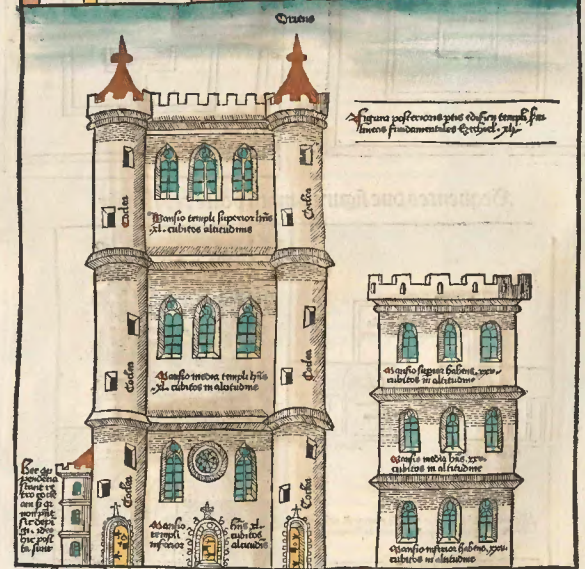 Oriens
Figura posterioris ptis edificij templi scdm
lineas fundamentales Ezechiel. xli.
Coclea
Coclea
Mansio templi superior hñs
.xl. cubitos altitudinis
Coclea
Coclea
Mansio media templi hñs
.xl. cubitos in altitudine
Coclea
Coclea
Mansio
templi
inferior
hñs xl.
cubitos
altitudis
Mansio superior habens. xxv.
cubitos in altitudine
Mansio media hñs. xxv.
cubitos in altitudine
Mansio inferior habens. xxv.
cubitos in altitudine
Hec
stant re
tro
non
sic depi